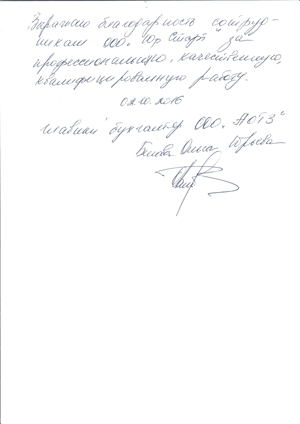 Выражаю благодарность сотруд-
никам ООО "Юр Старт" за
профессионализм, качественную,
квалифицированную работу.
02.10.2016
Главный бухгалтер ООО "АОТЗ"
Ольга